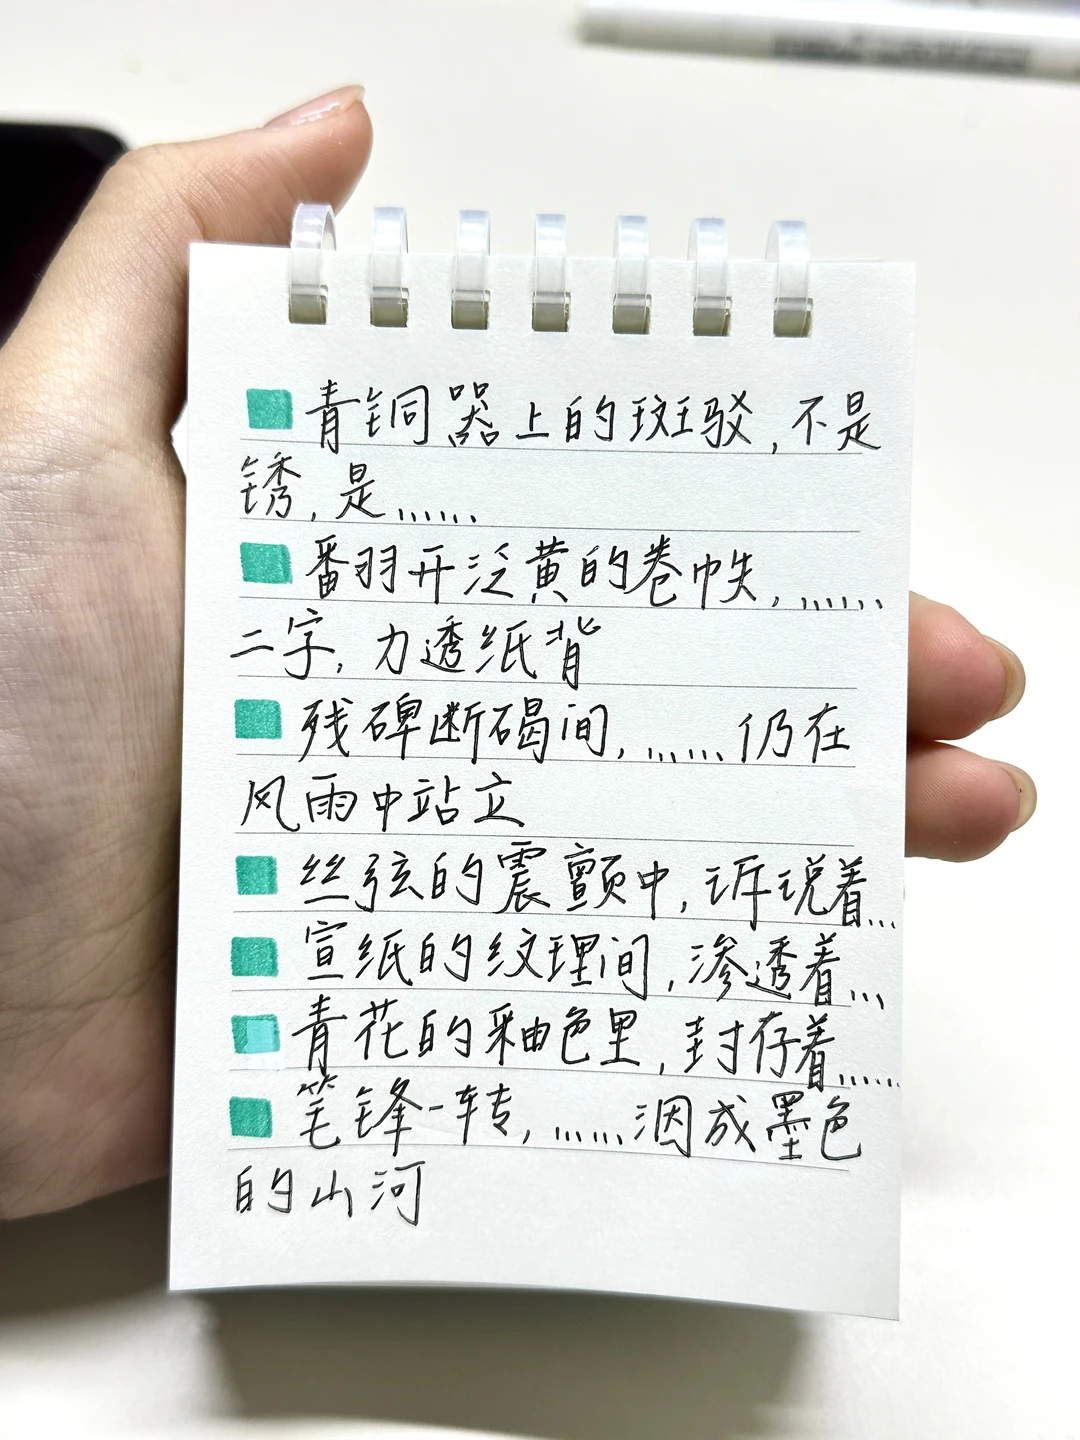 青铜器上的斑驳，不是
锈，是……
翻开泛黄的卷帙，……
二字，力透纸背
残碑断碣间，……仍在
风雨中站立
丝弦的震颤中，诉说着…
宣纸的纹理间，渗透着…
青花的釉色里，封存着……
笔锋一转，……洇成墨色
的山河